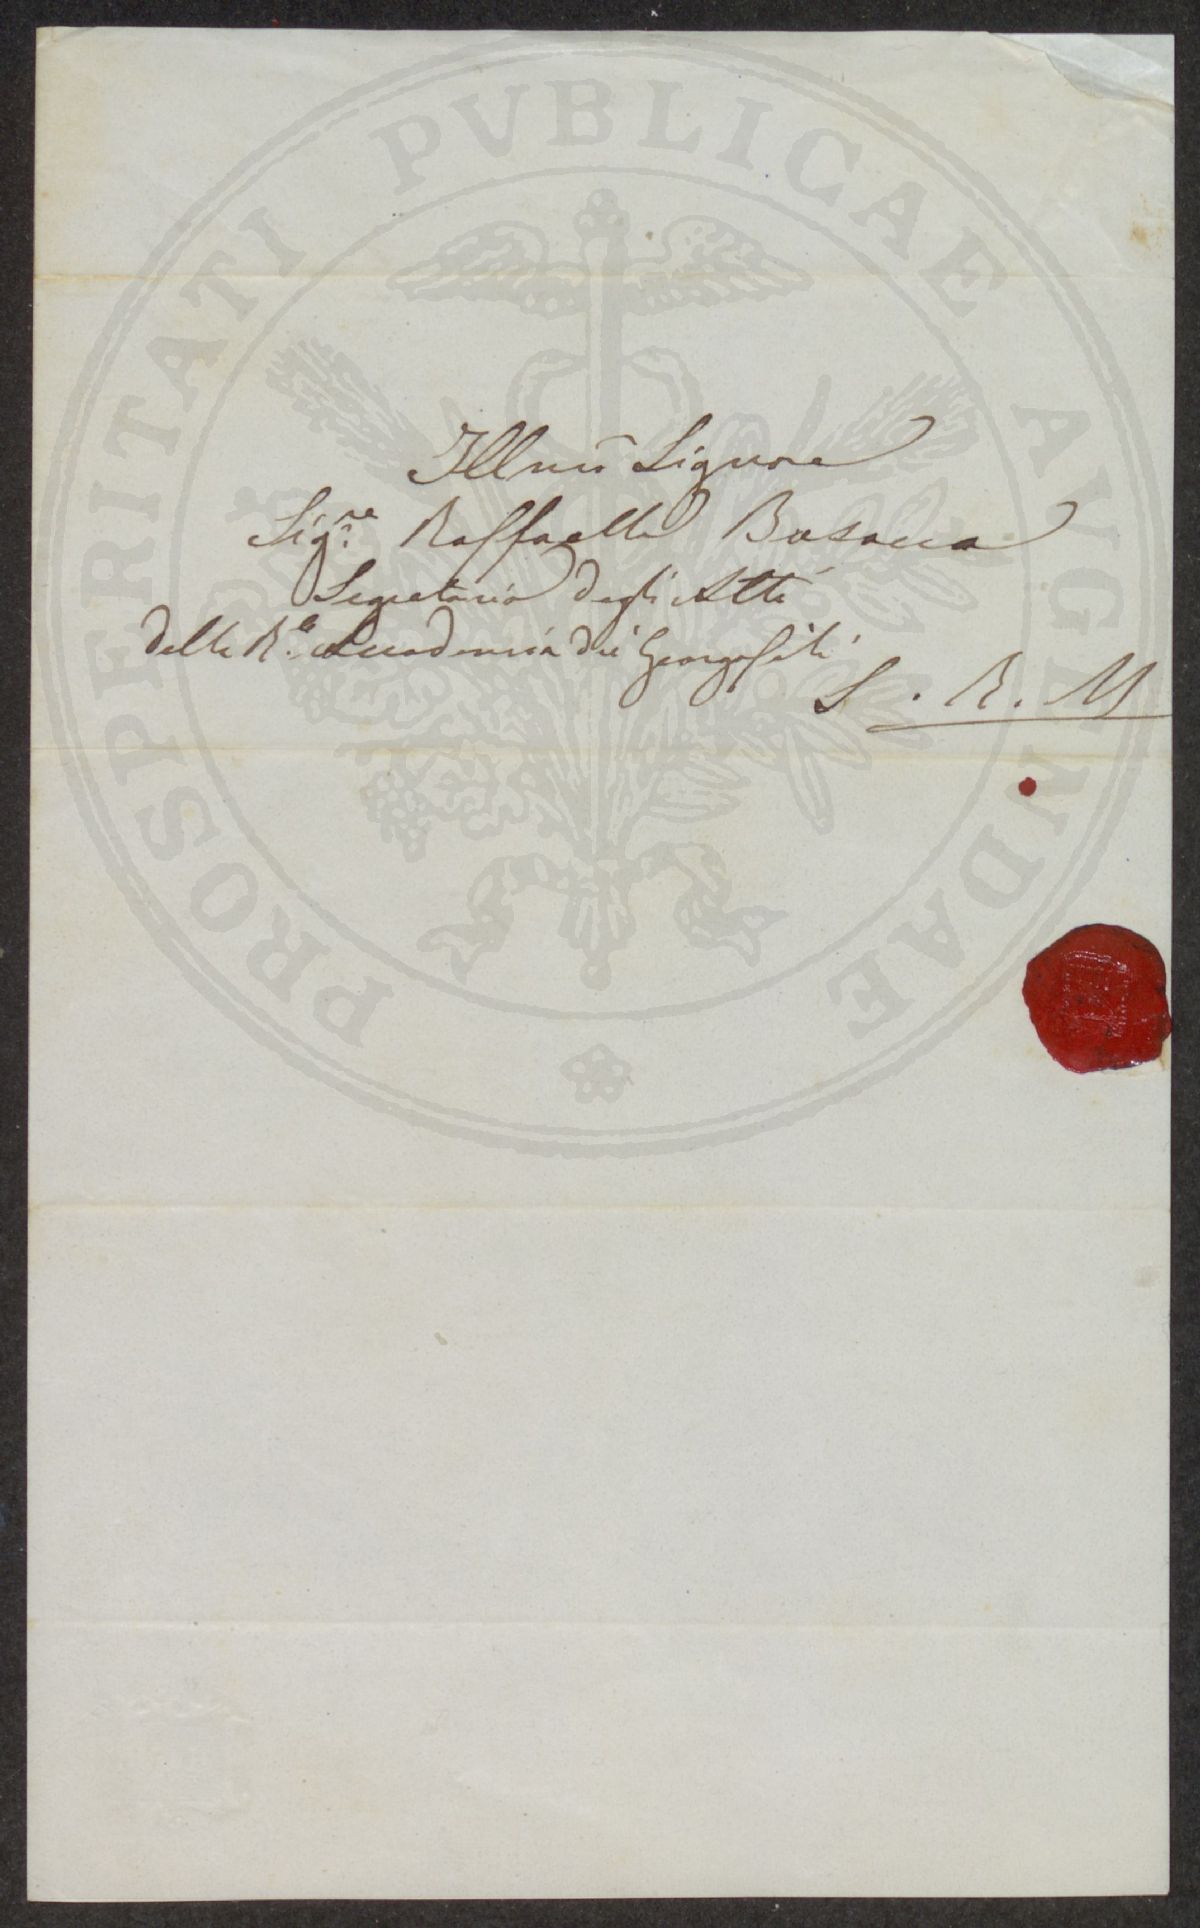 Illmo Signore
Sig.re Raffaello Busacca
Segretario degli Atti
della R.e Accademia dei Georgofili
S. R. M
PROSPERITATI PVBLICAE AVGENDAE